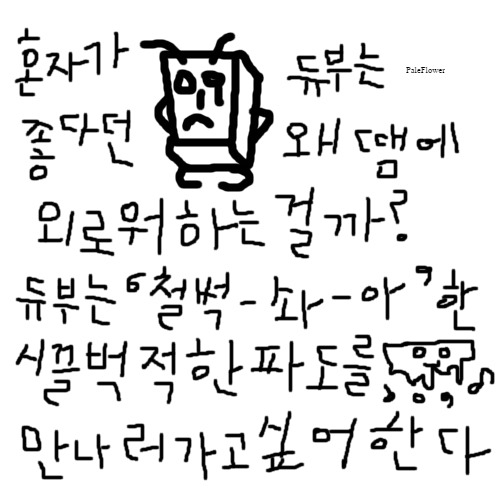 혼자가 듀부는
PaleFlower
좋다던 왜 땜에
외로워하는 걸까?
듀부는 "철썩-쏴-아" 한
시끌벅적한 파도를
만나러가고싶어한다